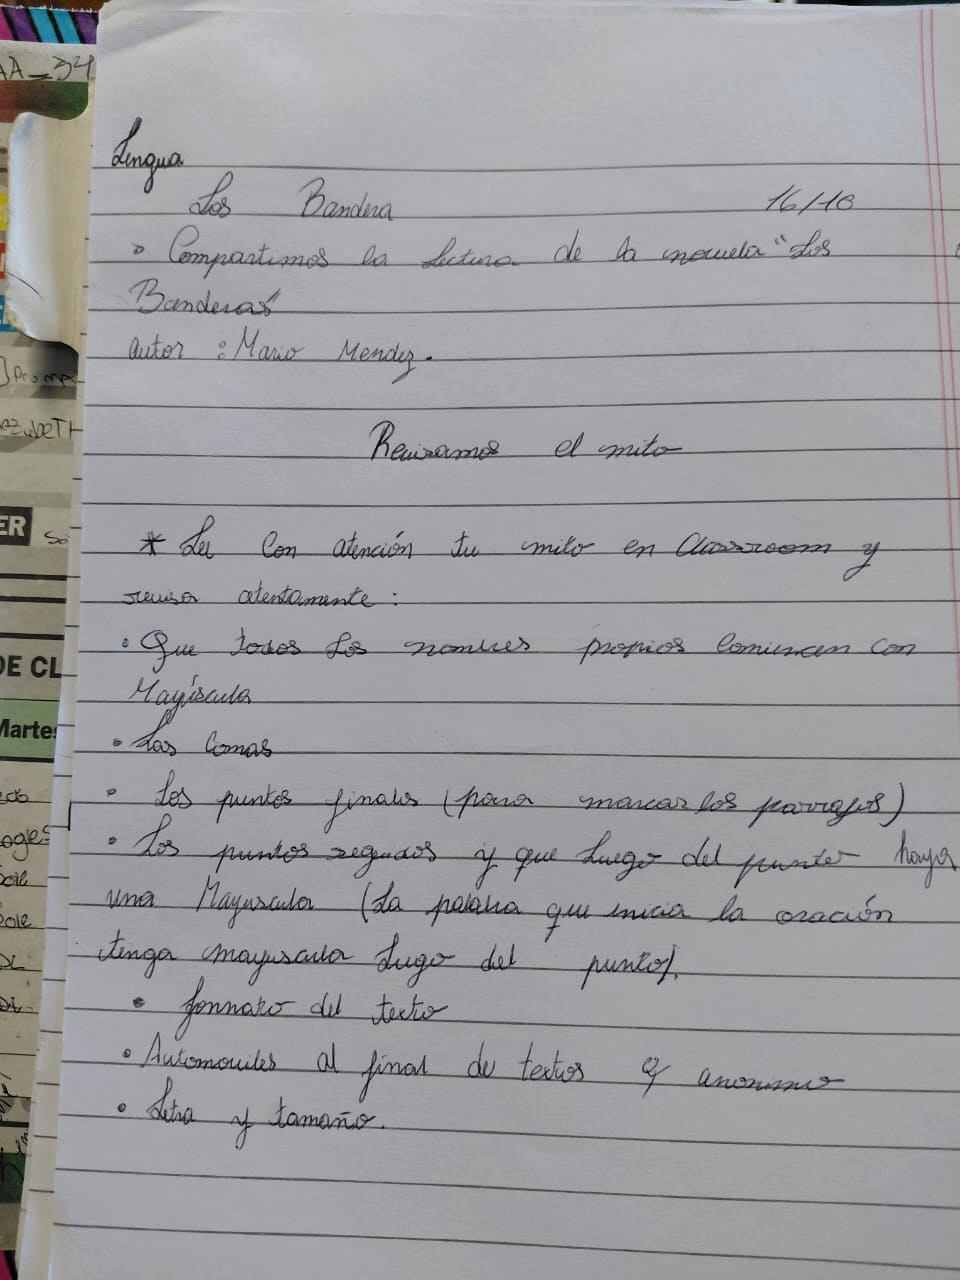 AA_34
Lengua
Los Bandera 16/10
Compartimos la lectura de la novela "Los
Banderas"
autor : Mario Mendez.
Revisamos el mito
* Leé Con atención tu mito en Classroom y
revisa atentamente :
• Que todos los nombres propios comienzan con
Mayúscula
• Las Comas
• Los puntos finales (para marcar los parrafos)
• Los puntos seguidos y que luego del punto haya
una Mayuscula (La palabra que inicia la oración
tenga mayuscula Lugo del punto).
• formato del texto
• Automoviles al final de textos y anonimo
• Letra y tamaño.
ER
DE CL
Martes